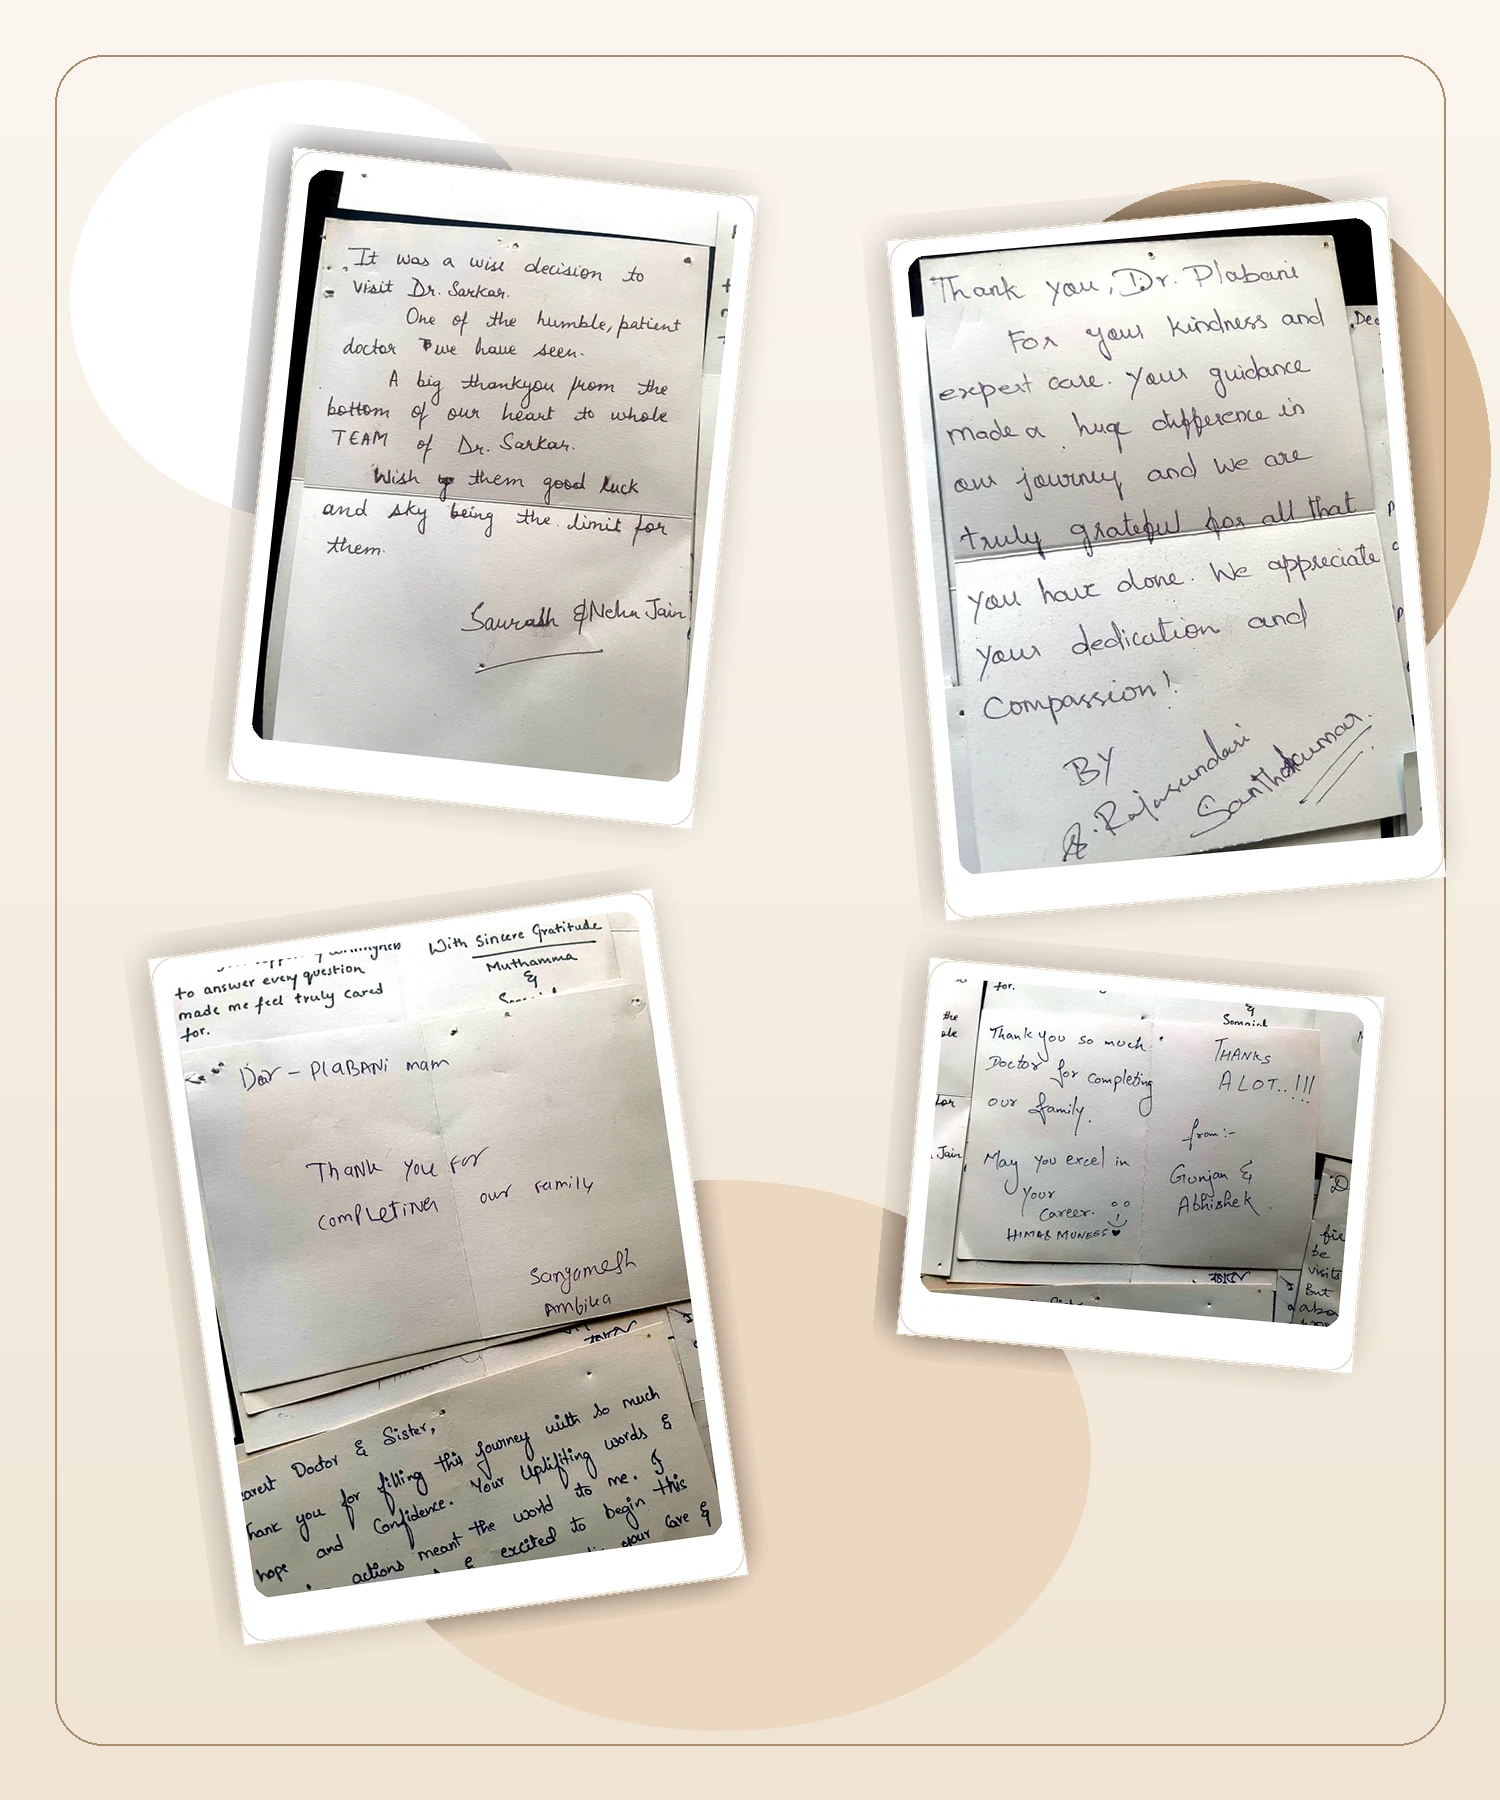 It was a wise decision to
visit Dr. Sarkar.
One of the humble, patient
doctor we have seen.
A big thankyou from the
bottom of our heart to whole
TEAM of Dr. Sarkar.
Wish them good luck
and sky being the limit for
them.
Saurabh & Neha Jain
Thank you, Dr. Plabani
For your kindness and
expert care. Your guidance
made a huge difference in
our journey and we are
truly grateful for all that
you have done. We appreciate
your dedication and
Compassion!
BY
R. Rajasundari
Santhakumar
to answer every question
made me feel truly cared
for.
With Sincere Gratitude
Muthamma
&
Dear - PlaBANi mam
Thank you For
completing our Family
Sangamesh
Ambika
Dearest Doctor & Sister,
Thank you for filling this journey with so much
hope and Confidence. Your Uplifiting words &
actions meant the world to me. I
& excited to begin this
your Care &
for.
&
the
Thank you so much
Doctor for completing
our family.
May you excel in
Your
Career.
THANKS
A LOT..!!!
from:-
Gunjan &
Abhishek.
for
Jain
be
visits
But